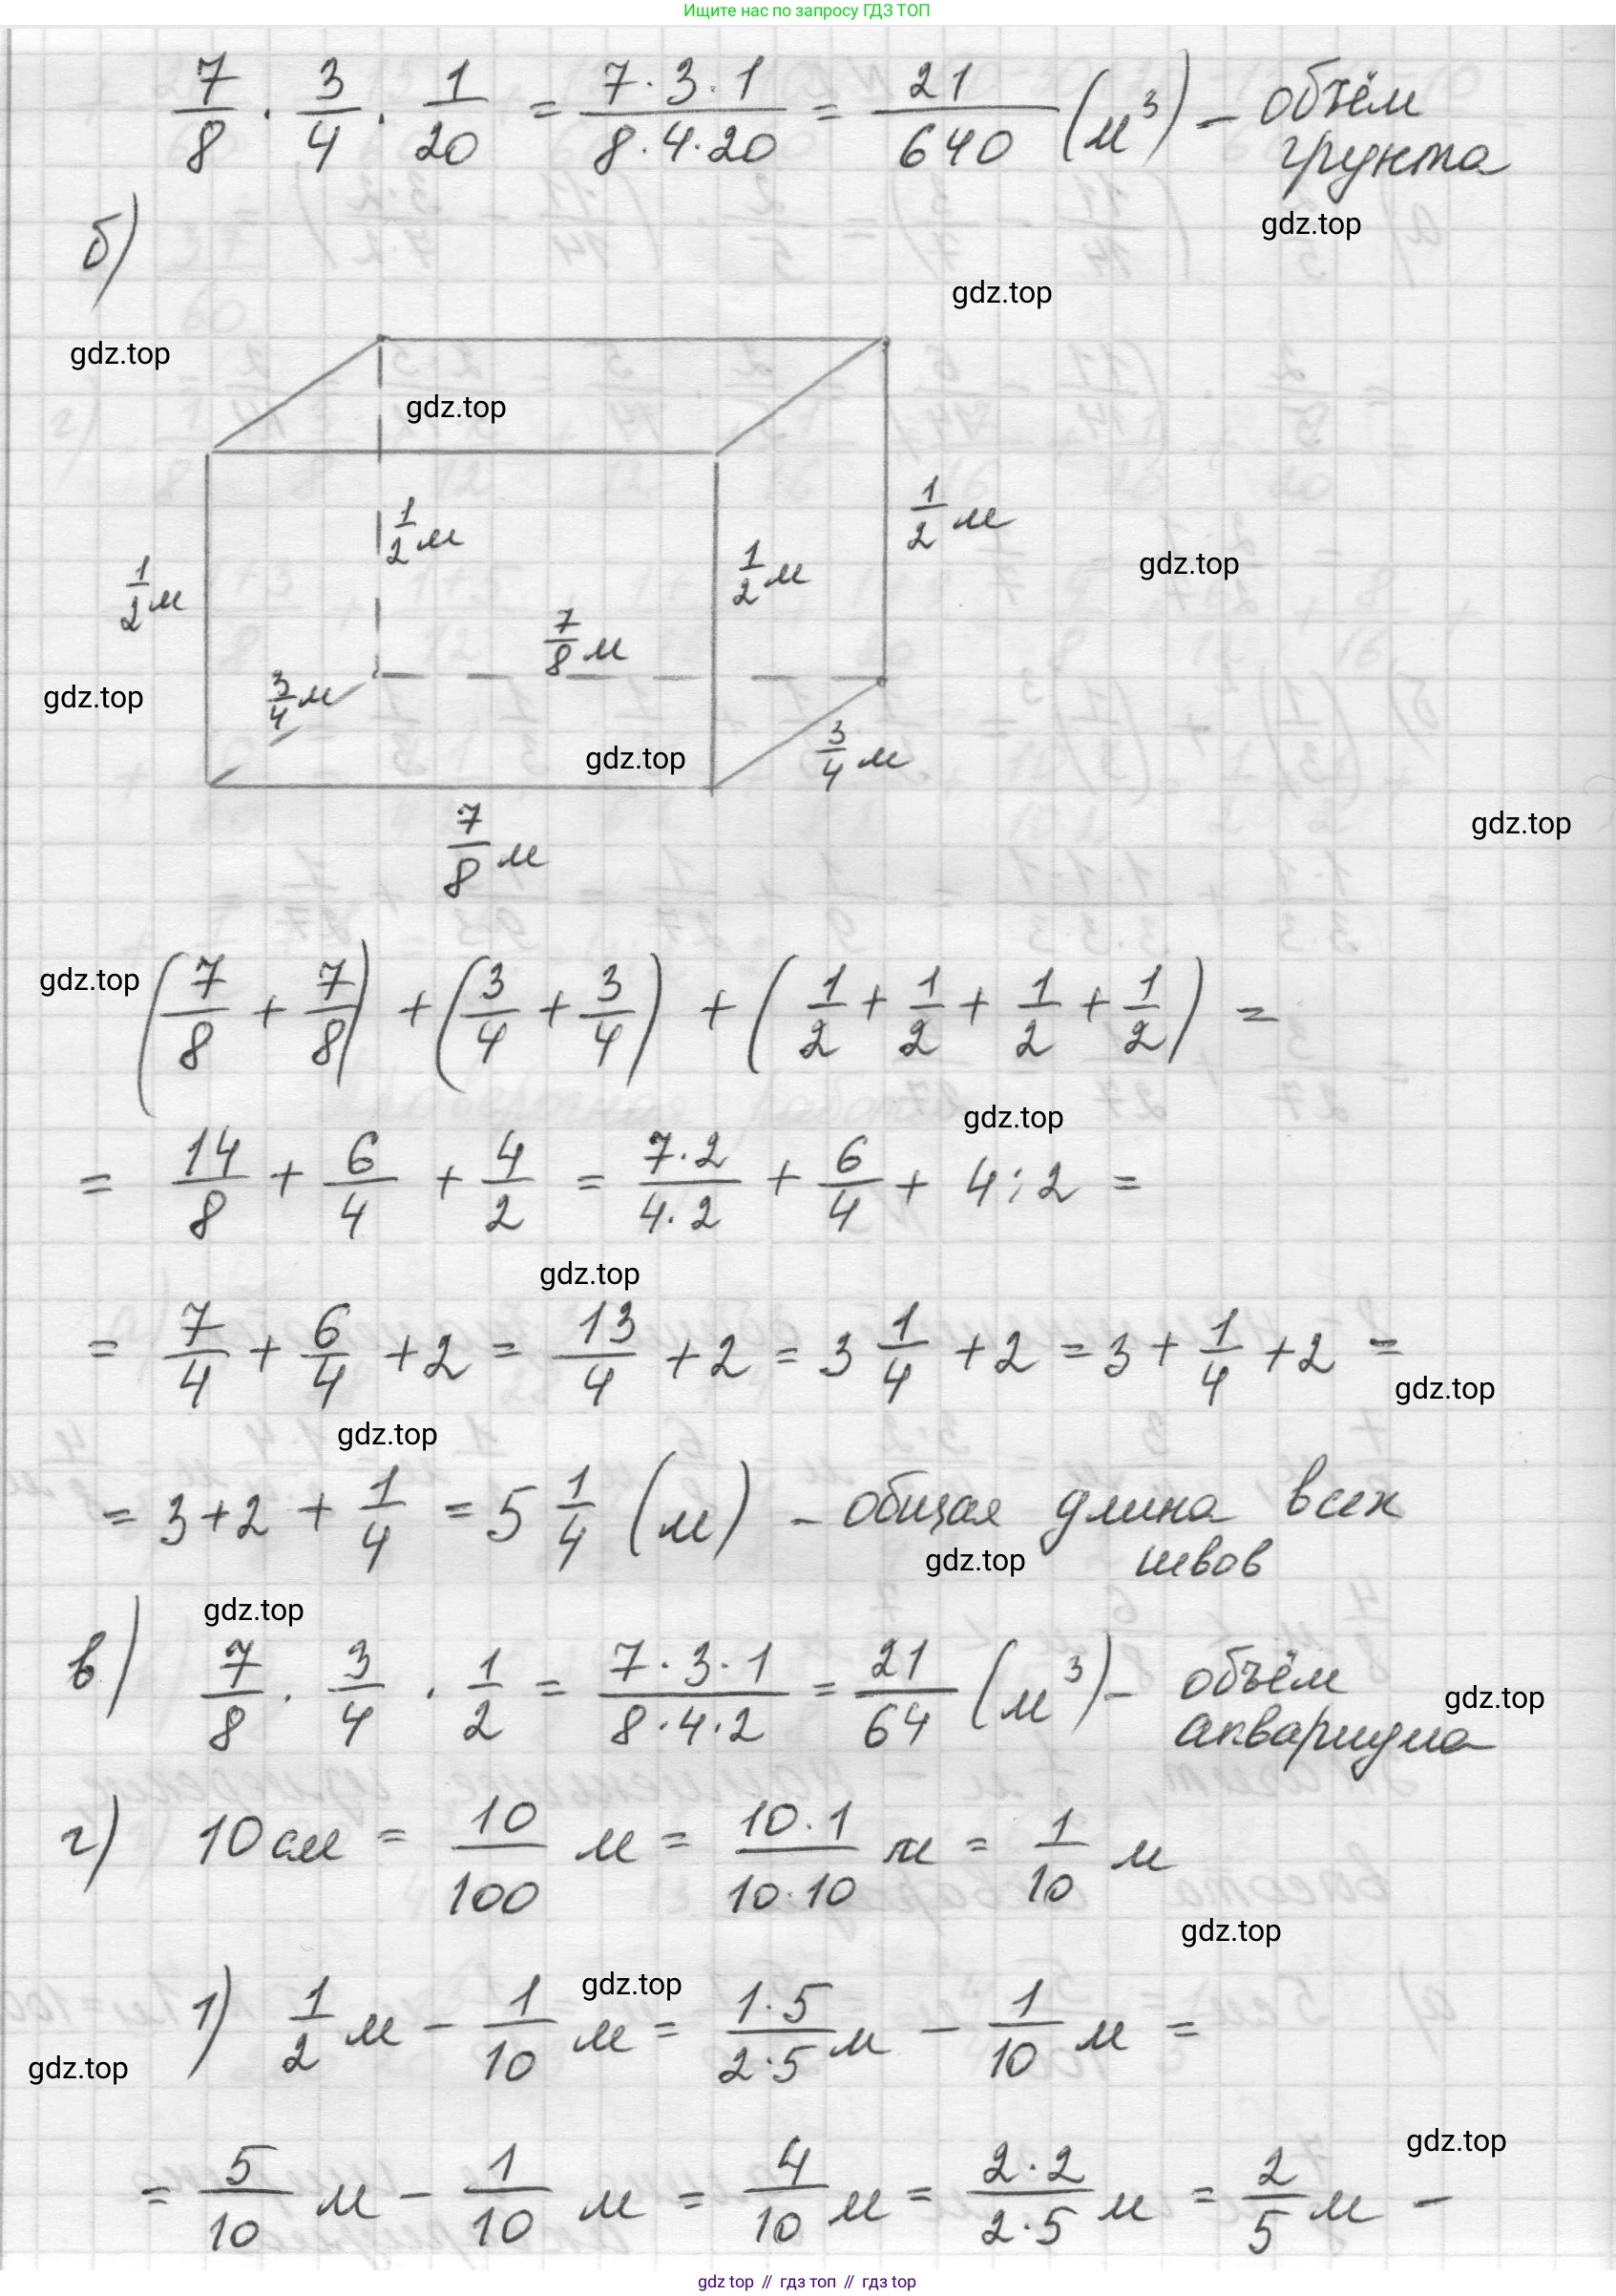 Ищите нас по запросу ГДЗ ТОП
7/8 · 3/4 · 1/20 = 7·3·1/8·4·20 = 21/640 (м³) – объём
грунта
gdz.top
б)
gdz.top
gdz.top
gdz.top
1/2 м
1/2 м
1/2 м
1/2 м
gdz.top
7/8 м
3/4 м
gdz.top
3/4 м
gdz.top
gdz.top
7/8 м
gdz.top
(7/8 + 7/8) + (3/4 + 3/4) + (1/2 + 1/2 + 1/2 + 1/2) =
gdz.top
= 14/8 + 6/4 + 4/2 = 7·2/4·2 + 6/4 + 4:2 =
gdz.top
= 7/4 + 6/4 + 2 = 13/4 + 2 = 3 1/4 + 2 = 3 + 1/4 + 2 =
gdz.top
gdz.top
= 3+2 + 1/4 = 5 1/4 (м) – общая длина всех
швов
gdz.top
gdz.top
в) 7/8 · 3/4 · 1/2 = 7·3·1/8·4·2 = 21/64 (м³) – объём
аквариума
gdz.top
г) 10 см = 10/100 м = 10·1/10·10 м = 1/10 м
gdz.top
gdz.top
1) 1/2 м – 1/10 м = 1·5/2·5 м – 1/10 м =
gdz.top
gdz.top
= 5/10 м – 1/10 м = 4/10 м = 2·2/2·5 м = 2/5 м –
gdz top // гдз топ // гдз top